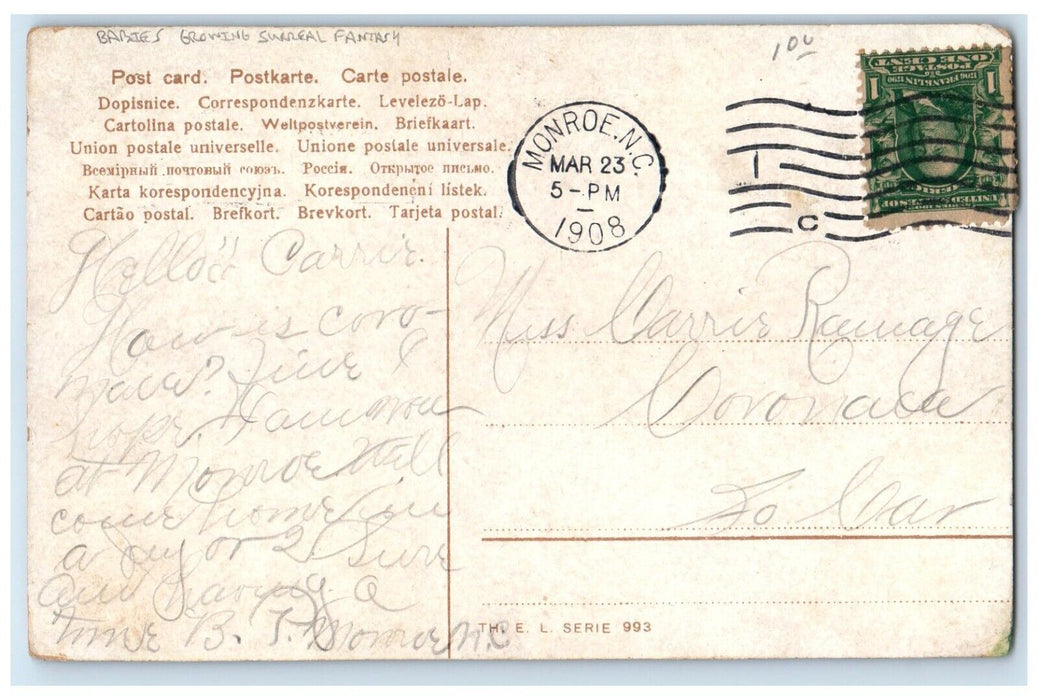 BABIES GROWING SURREAL FANTASY
100
Post card. Postkarte. Carte postale.
Dopisnice. Correspondenzkarte. Levelező-Lap.
Cartolina postale. Weltpostverein. Briefkaart.
Union postale universelle. Unione postale universale.
Всемірный почтовый союзъ. Россія. Открытое письмо.
Karta korespondencyjna. Korespondenční lístek.
Cartão postal. Brefkort. Brevkort. Tarjeta postal.
MONROE. N.C.
MAR 23
5-PM
1908
C
POSTAGE
ONE CENT
1 1
Hello Carrie.
How is coro-
naca? Fine I
hope. Am now
at Monroe Will
come home in
a day or 2. Sure
am having a
time B. T. Monroe N.C
Miss Carrie Ramage
Coronaca
So Car
TH. E. L. SERIE 993